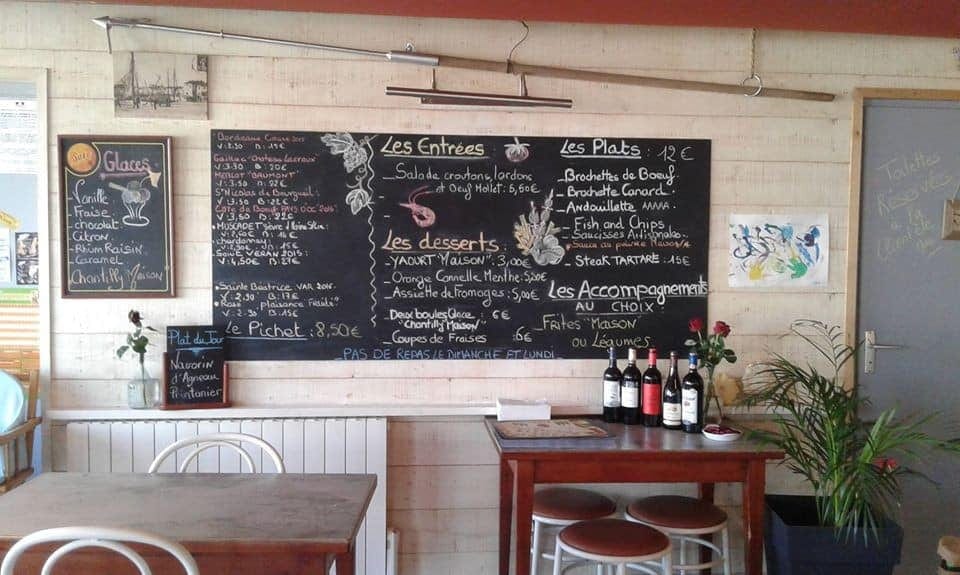 Glaces
_ Vanille
_ Fraise
_ chocolat
_ Citron
_ Rhum Raisin
_ Caramel
Chantilly Maison
Plat du Jour
Navarin
d'Agneau
Printanier
V: 3.50 B: 20€
MERLOT "BAUMONT"
V: 3.50 B: 22€
St Nicolas de Bourgueil
V: 3,50 B: 22€
MUSCADET Sèvre
chardonnay
V: 4,50€ B: 27€
Sainte Béatrice VAR 2015
V: 2.90 B: 17€
Rosé "plaisance
Le Pichet : 8,50€
Les Entrées
_ Salade croutons, lardons
et Oeuf Mollet: 5,50€
Les desserts:
_ "YAOURT MAISON": 3,00€
_ Orange Cannelle Menthe: 5,00€
_ Assiette de Fromages: 5,00€
_ Deux boules Glace : 6€
"Chantilly Maison"
_ Coupes de Fraises : 6€
Les Plats: 12€
_ Brochettes de Boeuf
_ Brochette Canard
_ Andouillette AAAAA
_ Fish and Chips
_ Saucisses Artisanales
_ Steak TARTARE: 15€
Les Accompagnements
AU CHOIX :
_ Frites "Maison
ou Légumes
_ PAS DE REPAS LE DIMANCHE ET LUNDI _
Toilettes
Réservées
à la
Clientèle